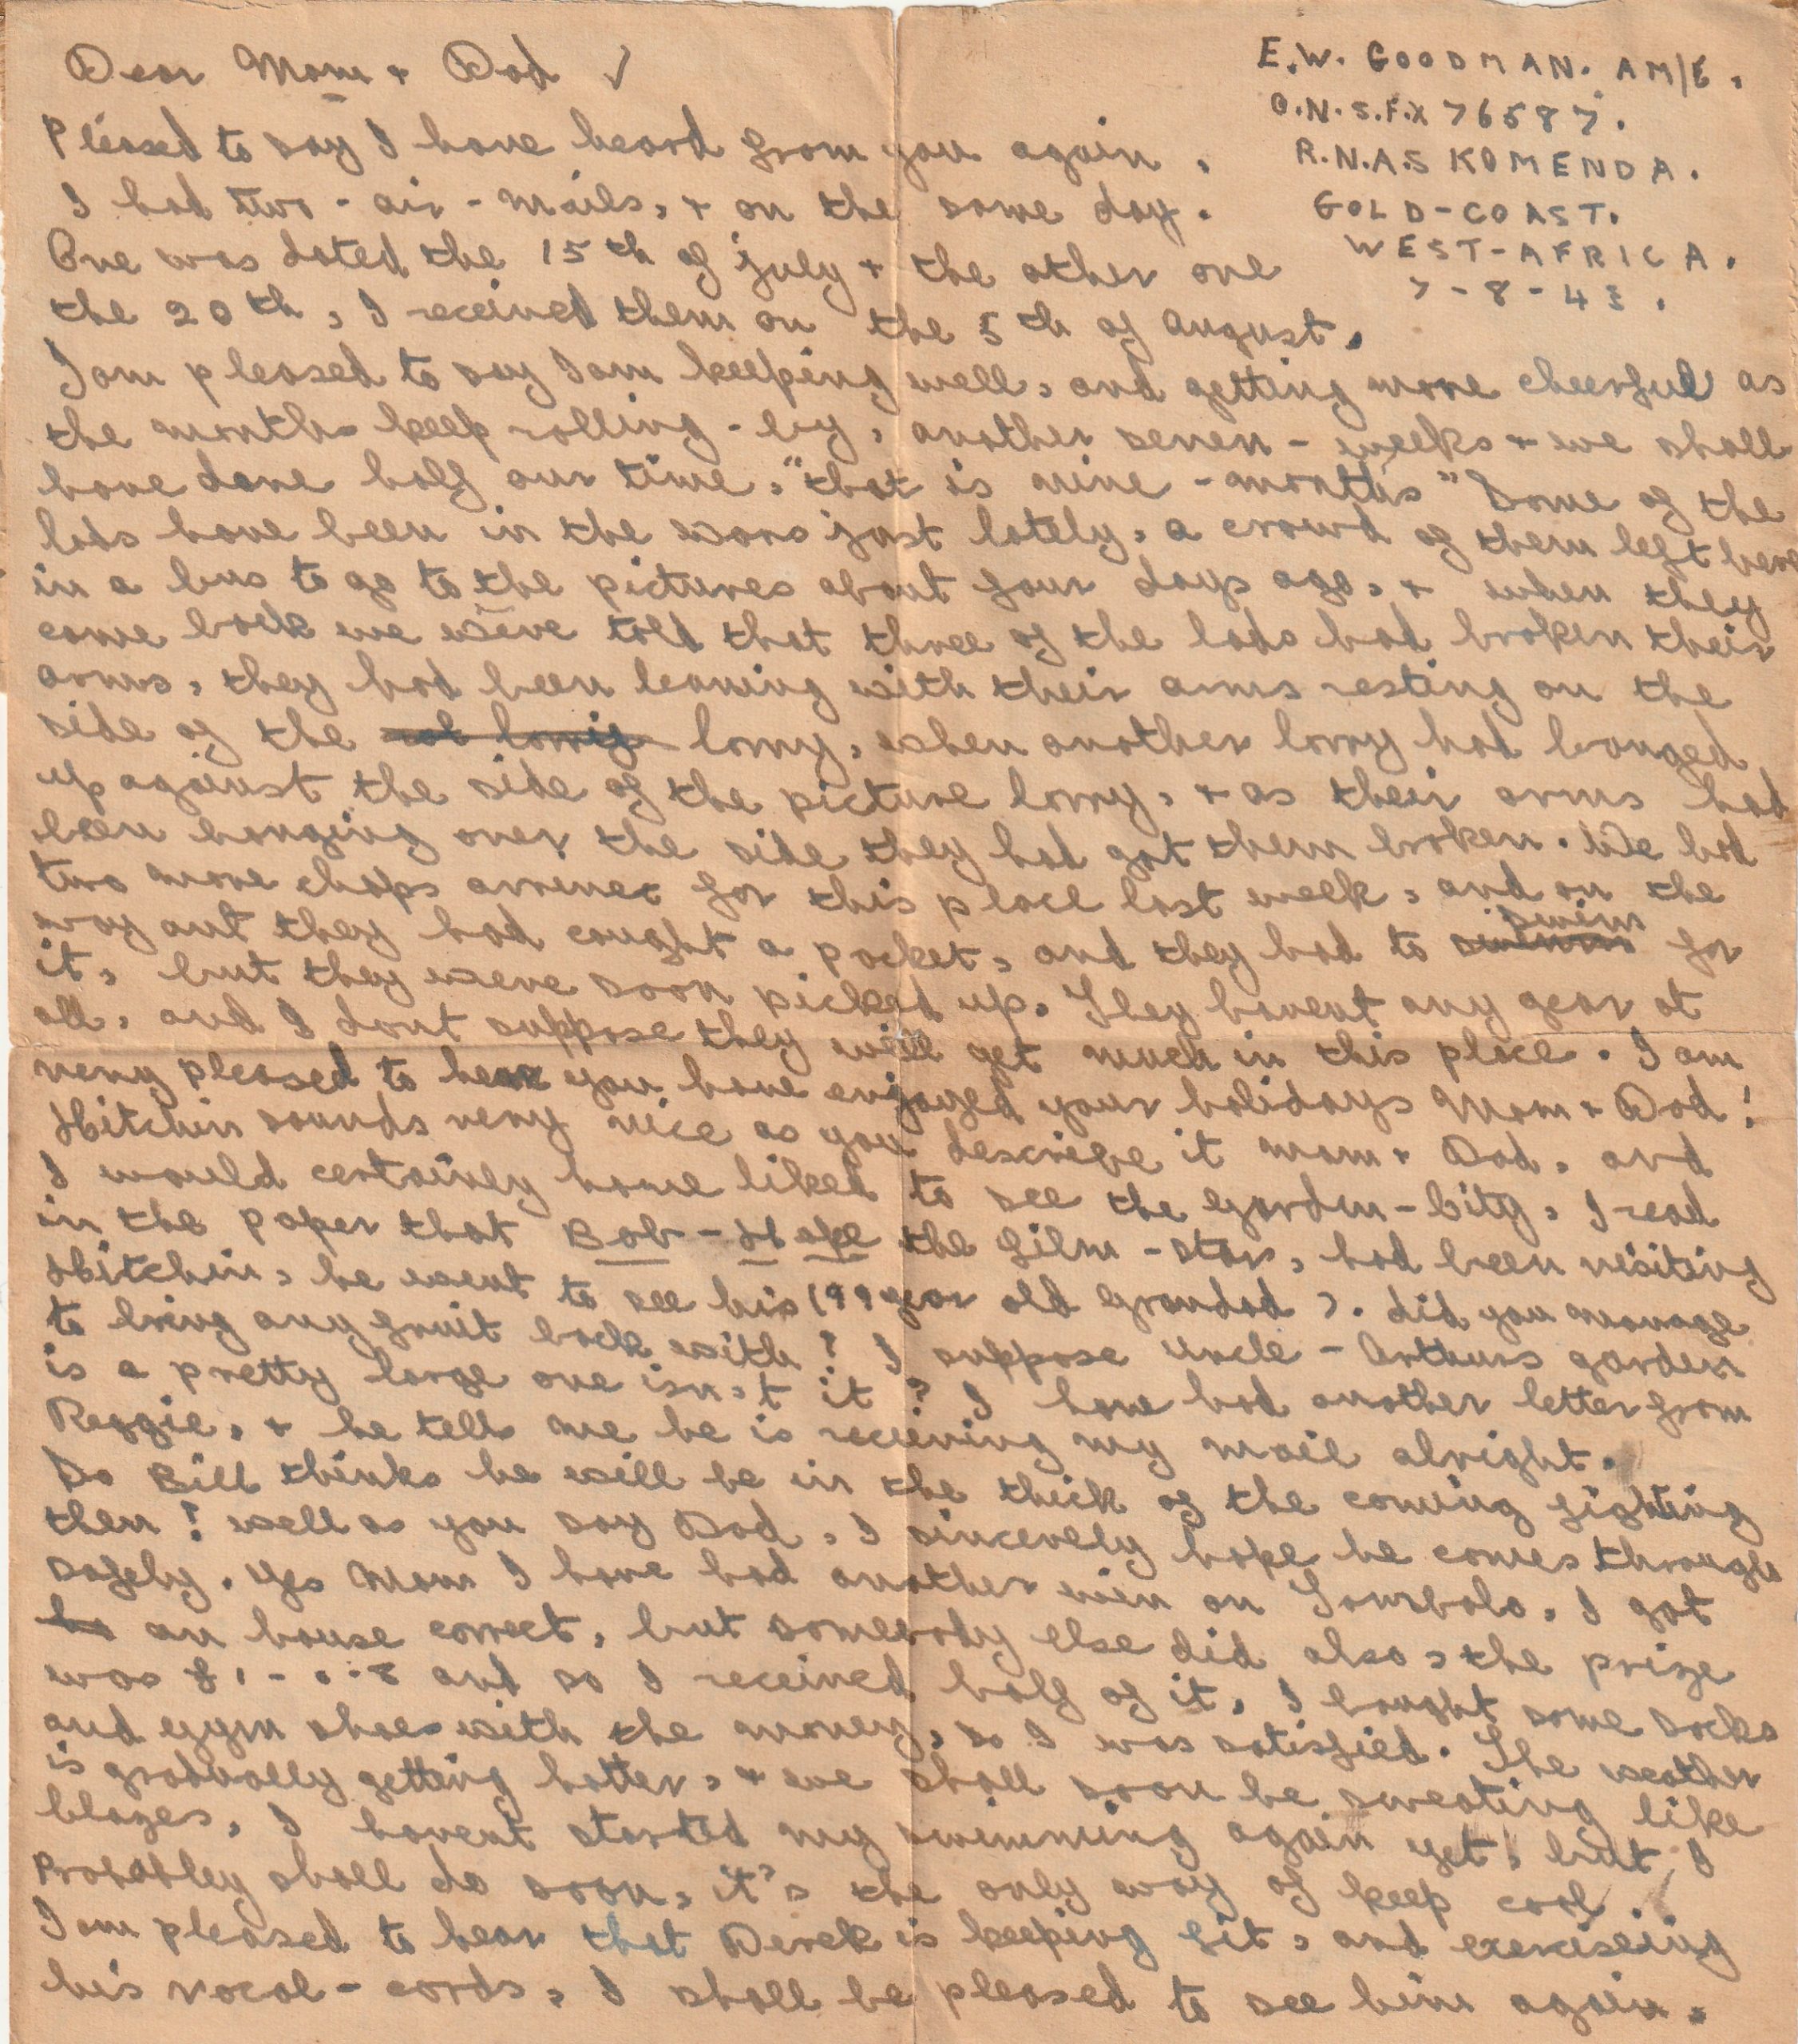 E.W. GOODMAN. AM/E.
O.N.S.F.X 76587.
R.N.A.S KOMENDA.
GOLD-COAST.
WEST-AFRICA.
7-8-43.
Dear Mom + Dad ✓
Pleased to say I have heard from you again.
I had two-air-mails, + on the same day.
One was dated the 15th of july + the other one
the 20th, I received them on the 5th of August.
I am pleased to say I am keeping well, and getting more cheerful as
the months keep rolling-by, another seven-weeks + we shall
have done half our time, "that is nine-months" Some of the
lads have been in the wars just lately, a crowd of them left here
in a bus to go to the pictures about four days ago, + when they
come back we were told that three of the lads had broken their
arms, they had been leaning with their arms resting on the
side of the lorry, when another lorry had banged
up against the side of the picture lorry, + as their arms had
been hanging over the side they had got them broken. We had
two more chaps arrive for this place last week, and on the
way out they had caught a packet, and they had to swim for
it, but they were soon picked up. They havent any gear at
all, and I dont suppose they will get much in this place. I am
very pleased to hear you have enjoyed your holidays Mom + Dad!
Hitchin sounds very nice as you describe it mom + Dad, and
I would certainly have liked to see the Garden-City, I read
in the paper that Bob-Hope the film-star, had been visiting
Hitchin, he went to see his (99 year old Grandad). did you manage
to bring any fruit back with? I suppose Uncle-Arthurs garden
is a pretty large one isn't it? I have had another letter from
Reggie, + he tells me he is recieving my mail alright.
So Bill thinks he will be in the thick of the coming fighting
then? well as you say Dad, I sincerely hope he comes through
safely. Yes Mom I have had another win on Tombola, I got
an house correct, but somebody else did also, the prize
was £1- and so I received half of it, I bought some socks
and gym shoes with the money, so I was satisfied. The weather
is gradually getting hotter, + we shall soon be sweating like
blazes, I havent started my swimming again yet, but I
Probabley shall do soon, it's the only way of keep cool.
I am pleased to hear that Derek is keeping fit, and exerciseing
his vocal-cords, I shall be pleased to see him again.